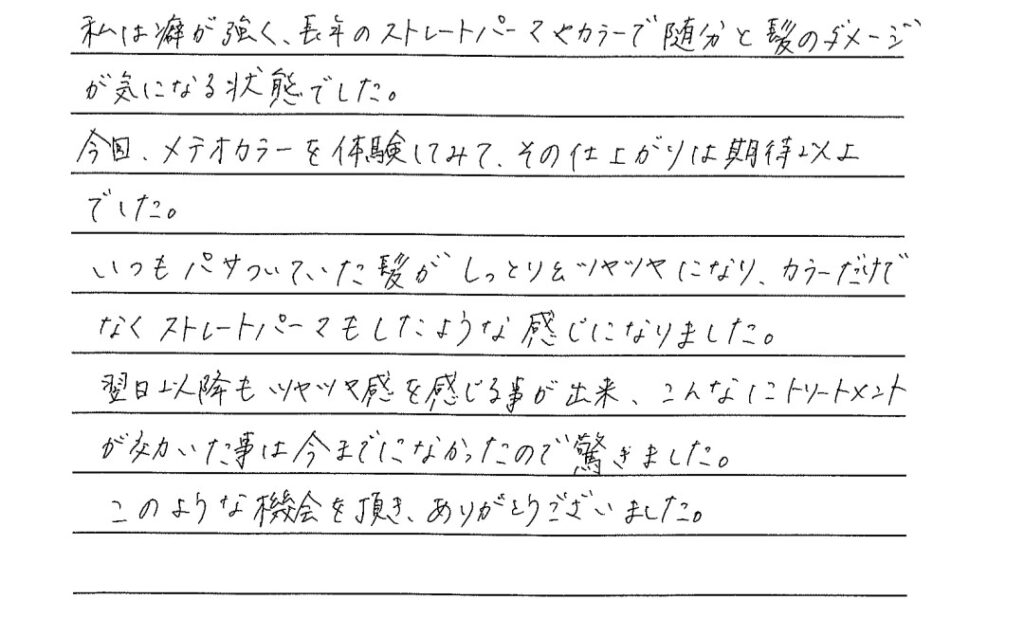 私は癖が強く、長年のストレートパーマやカラーで随分と髪のダメージ
が気になる状態でした。
今回、メテオカラーを体験してみて、その仕上がりは期待以上
でした。
いつもパサついていた髪がしっとり&ツヤツヤになり、カラーだけで
なくストレートパーマもしたような感じになりました。
翌日以降もツヤツヤ感を感じる事が出来、こんなにトリートメント
が効いた事は今までになかったので驚きました。
このような機会を頂き、ありがとうございました。